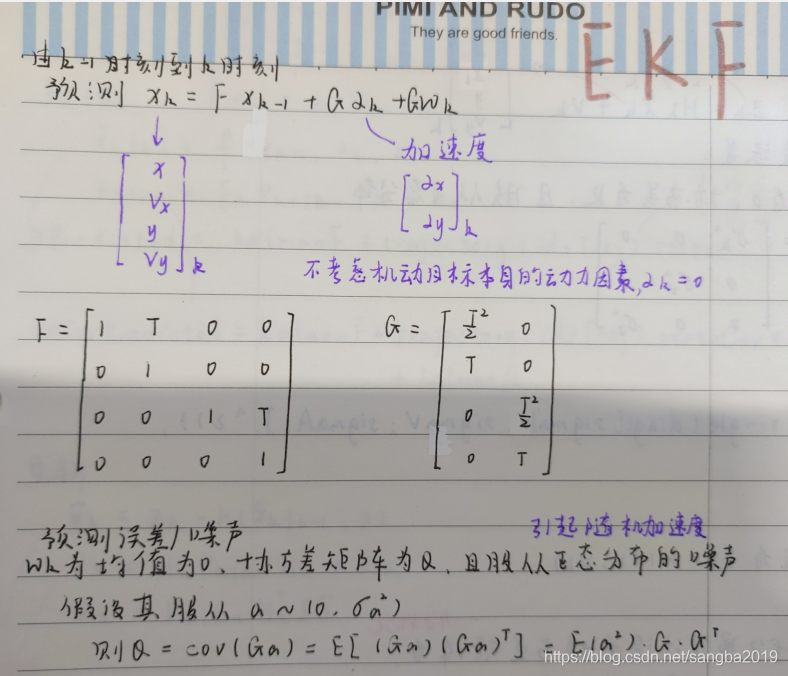 PIMI AND RUDO
They are good friends.
EKF
由k-1时刻到k时刻
预测 xk = F xk-1 + G ak + G wk
加速度
[ x Vx y Vy ]k
[ ax ay ]k
不考虑机动目标本身的动力因素, ak = 0
F = [ 1 T 0 0
0 1 0 0
0 0 1 T
0 0 0 1 ]
G = [ T²/2 0
T 0
0 T²/2
0 T ]
预测误差/噪声
引起随机加速度
wk为均值为0、协方差矩阵为Q、且服从正态分布的噪声
假设其服从 a ~ (0, σa²)
则Q = cov(Ga) = E[(Ga)(Ga)ᵀ] = E(a²)·G·Gᵀ
https://blog.csdn.net/sangba2019